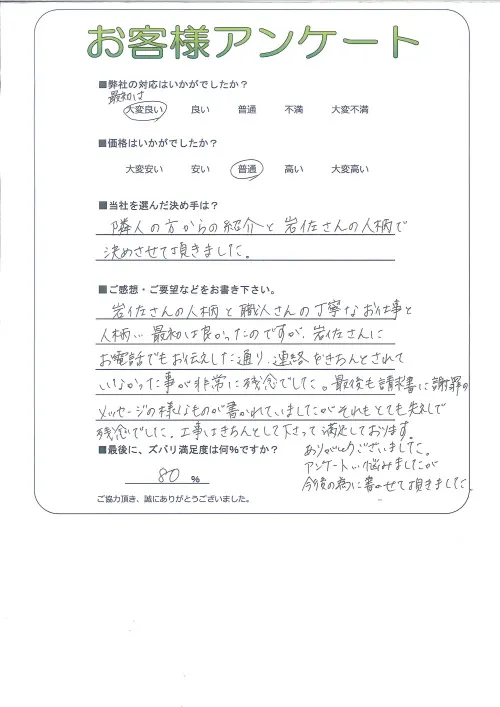 お客様アンケート
■弊社の対応はいかがでしたか？
最初は
大変良い 良い 普通 不満 大変不満
■価格はいかがでしたか？
大変安い 安い 普通 高い 大変高い
■当社を選んだ決め手は？
隣人の方からの紹介と岩佐さんの人柄で
決めさせて頂きました。
■ご感想・ご要望などをお書き下さい。
岩佐さんの人柄と職人さんの丁寧なお仕事と
人柄、最初は良かったのですが、岩佐さんに
お電話でもお伝えした通り、連絡をきちんとされて
いなかった事が非常に残念でした。最後も請求書に謝罪の
メッセージの様なものが書かれていましたがそれもとても失礼で
残念でした。工事はきちんとして下さって満足しております。
■最後に、ズバリ満足度は何％ですか？
80 %
ありがとうございました。
アンケート、悩みましたが
今後の為に書かせて頂きました。
ご協力頂き、誠にありがとうございました。